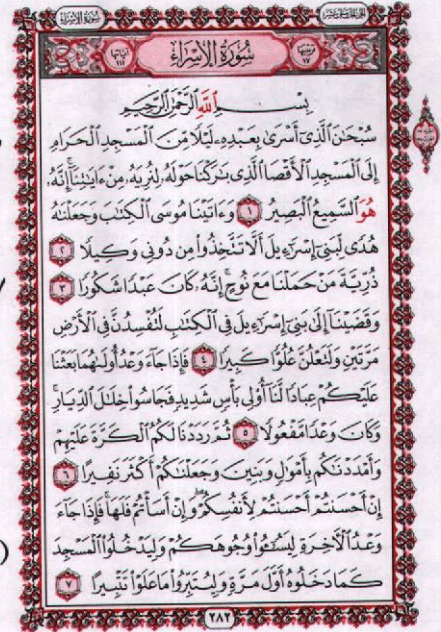 الجزء الخامس عشر
سورة الإسراء
ترتيبها ١٧
سُورَةُ الإِسْرَاءِ
آياتها ١١١
بِسْمِ ٱللَّهِ ٱلرَّحْمَٰنِ ٱلرَّحِيمِ
سُبْحَٰنَ ٱلَّذِىٓ أَسْرَىٰ بِعَبْدِهِۦ لَيْلًا مِّنَ ٱلْمَسْجِدِ ٱلْحَرَامِ
إِلَى ٱلْمَسْجِدِ ٱلْأَقْصَا ٱلَّذِى بَٰرَكْنَا حَوْلَهُۥ لِنُرِيَهُۥ مِنْ ءَايَٰتِنَآ إِنَّهُۥ
هُوَ ٱلسَّمِيعُ ٱلْبَصِيرُ ١ وَءَاتَيْنَا مُوسَى ٱلْكِتَٰبَ وَجَعَلْنَٰهُ
هُدًى لِّبَنِىٓ إِسْرَٰٓءِيلَ أَلَّا تَتَّخِذُوا۟ مِن دُونِى وَكِيلًا ٢
ذُرِّيَّةَ مَنْ حَمَلْنَا مَعَ نُوحٍ إِنَّهُۥ كَانَ عَبْدًا شَكُورًا ٣
وَقَضَيْنَآ إِلَىٰ بَنِىٓ إِسْرَٰٓءِيلَ فِى ٱلْكِتَٰبِ لَتُفْسِدُنَّ فِى ٱلْأَرْضِ
مَرَّتَيْنِ وَلَتَعْلُنَّ عُلُوًّا كَبِيرًا ٤ فَإِذَا جَآءَ وَعْدُ أُولَىٰهُمَا بَعَثْنَا
عَلَيْكُمْ عِبَادًا لَّنَآ أُو۟لِى بَأْسٍ شَدِيدٍ فَجَاسُوا۟ خِلَٰلَ ٱلدِّيَارِ
وَكَانَ وَعْدًا مَّفْعُولًا ٥ ثُمَّ رَدَدْنَا لَكُمُ ٱلْكَرَّةَ عَلَيْهِمْ
وَأَمْدَدْنَٰكُم بِأَمْوَٰلٍ وَبَنِينَ وَجَعَلْنَٰكُمْ أَكْثَرَ نَفِيرًا ٦
إِنْ أَحْسَنتُمْ أَحْسَنتُمْ لِأَنفُسِكُمْ وَإِنْ أَسَأْتُمْ فَلَهَا فَإِذَا جَآءَ
وَعْدُ ٱلْءَاخِرَةِ لِيَسُۥٓـُٔوا۟ وُجُوهَكُمْ وَلِيَدْخُلُوا۟ ٱلْمَسْجِدَ
كَمَا دَخَلُوهُ أَوَّلَ مَرَّةٍ وَلِيُتَبِّرُوا۟ مَا عَلَوْا۟ تَتْبِيرًا ٧
٢٨٢